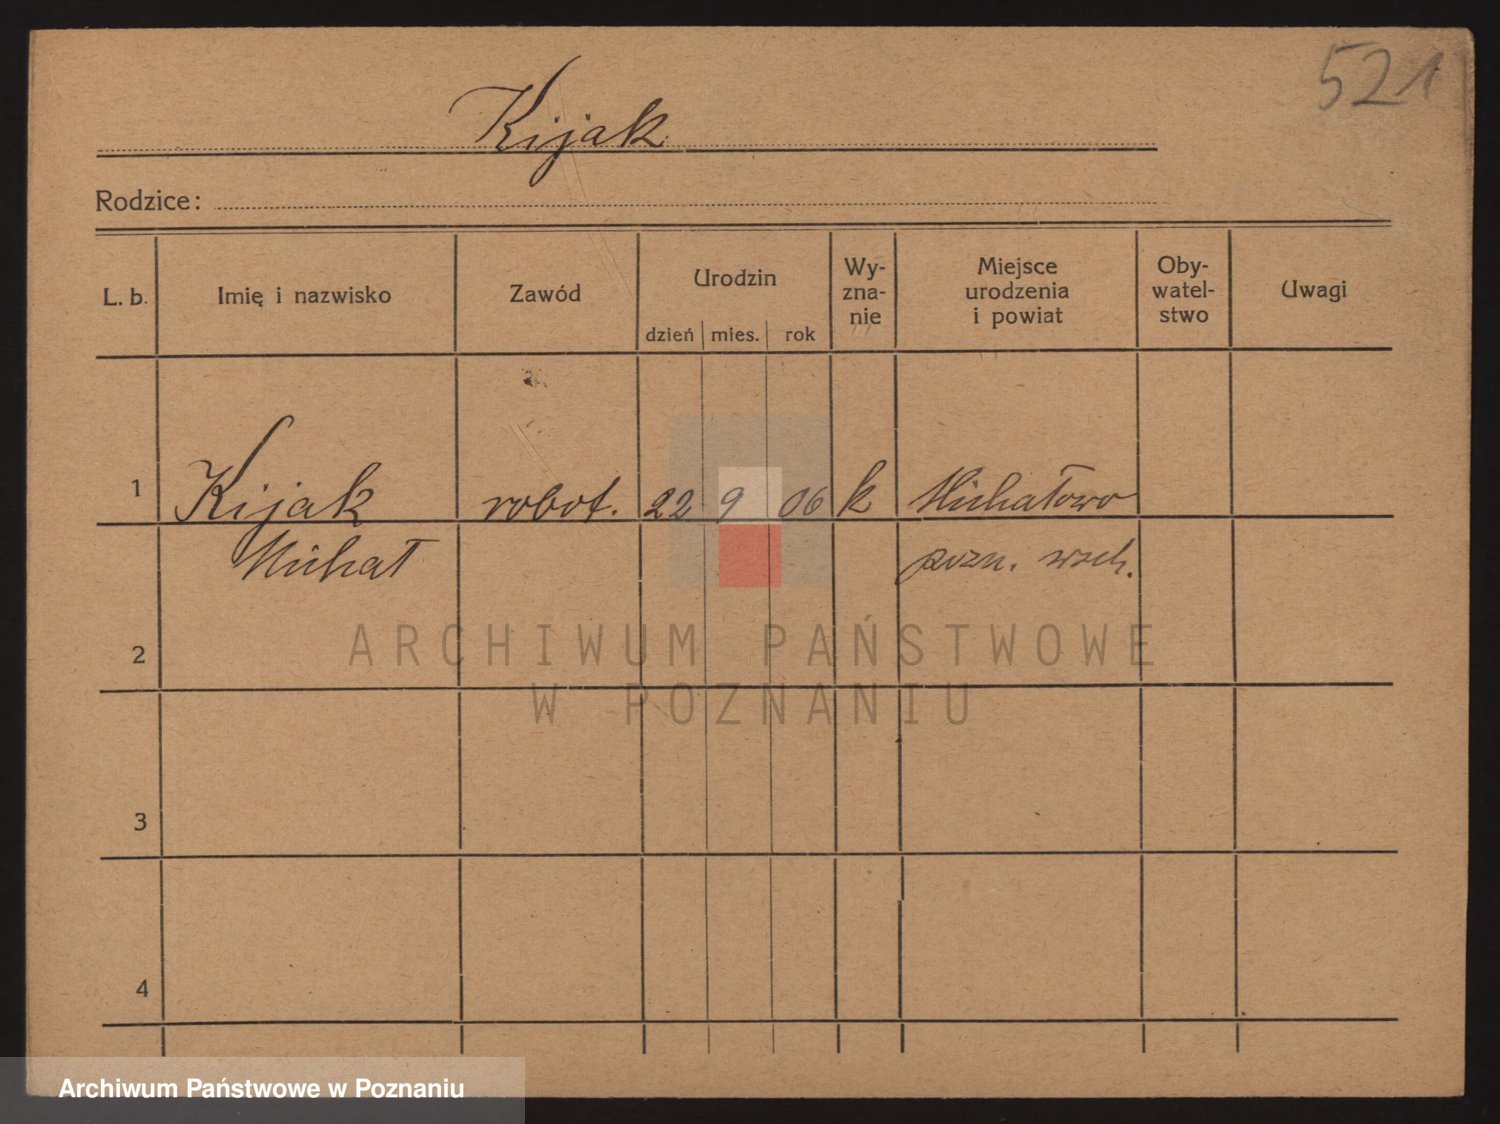 521
Kijak
Rodzice:
L. b. Imię i nazwisko Zawód Urodzin Wy- zna- nie Miejsce urodzenia i powiat Oby- watel- stwo Uwagi
dzień mies. rok
1 Kijak robot. 22 9 06 k Michałowo
Michał pozn. wsch.
2
3
4
ARCHIWUM PAŃSTWOWE
W POZNANIU
Archiwum Państwowe w Poznaniu